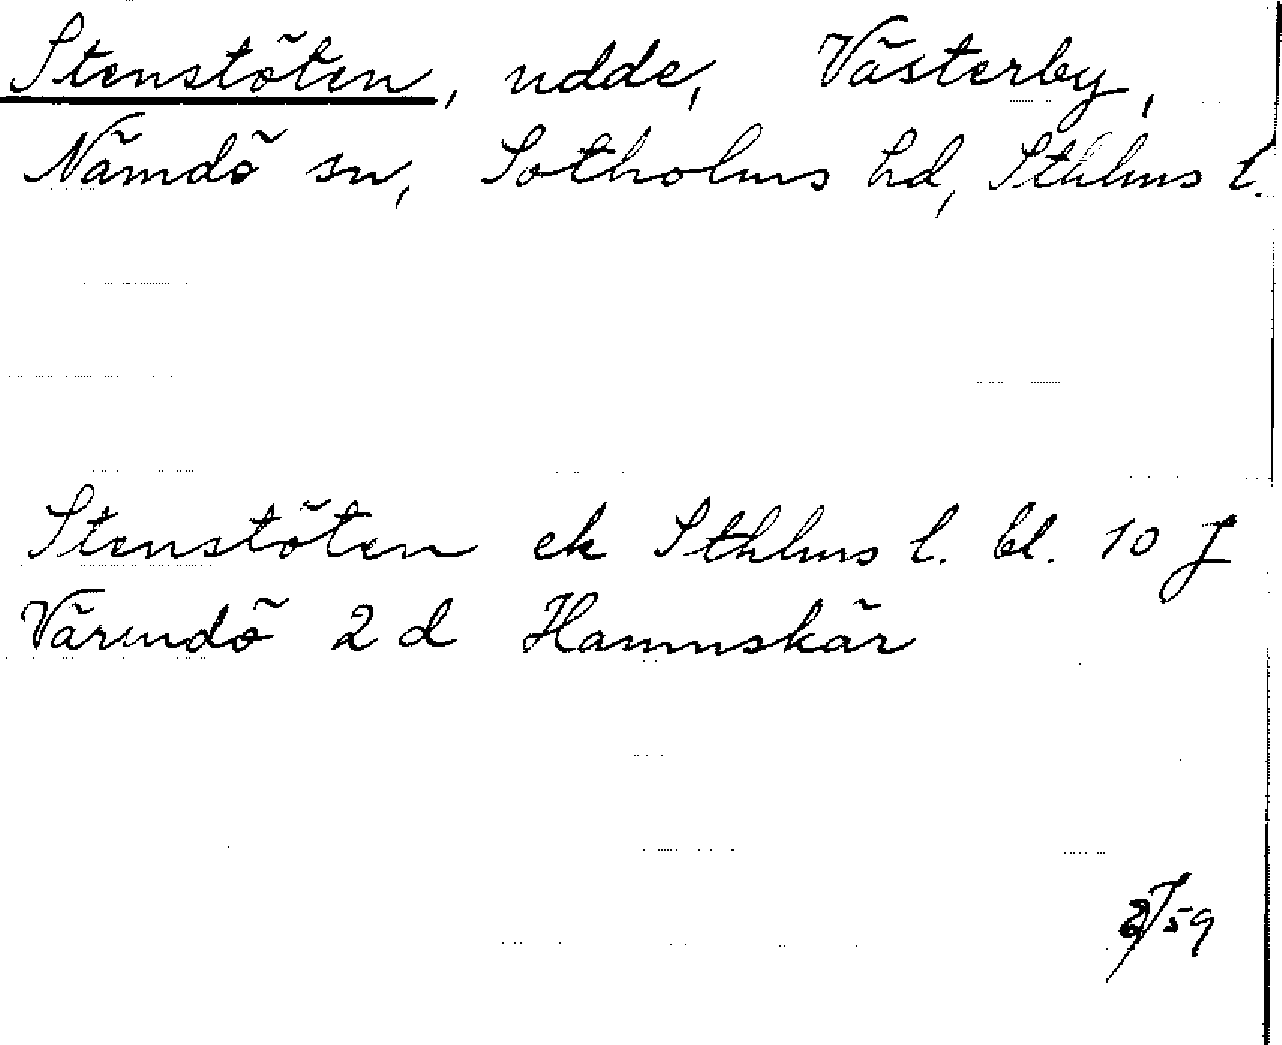 Stenstöten, udde, Västerby,
Nämdö sn, Sotholms hd, Sthlms l.
Stenstöten ek Sthlms l. bl. 10 J
Värmdö 2 d Hamnskär
59